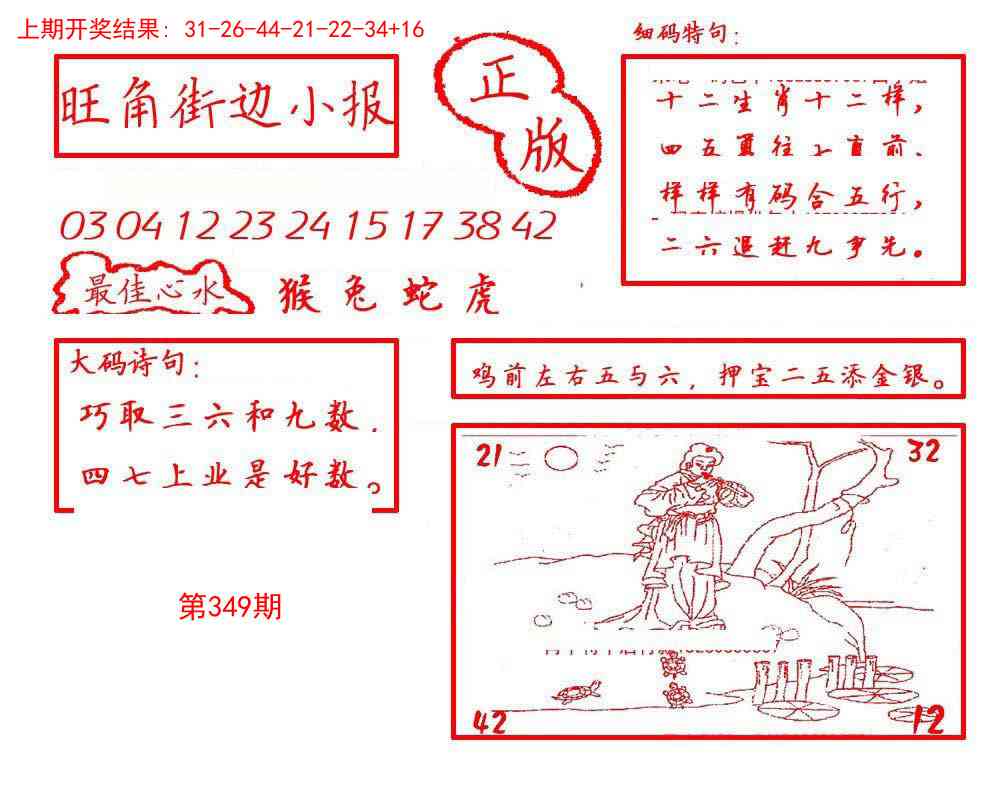 上期开奖结果: 31-26-44-21-22-34+16
细码特句:
旺角街边小报
正版
十二生肖十二样,
四五勇往上直前、
样样有码含五行,
二六追赶九争先。
03 04 12 23 24 15 17 38 42
最佳心水
猴兔蛇虎
大码诗句:
巧取三六和九数.
四七上业是好数。
鸡前左右五与六, 押宝二五添金银。
21
32
42
12
第349期